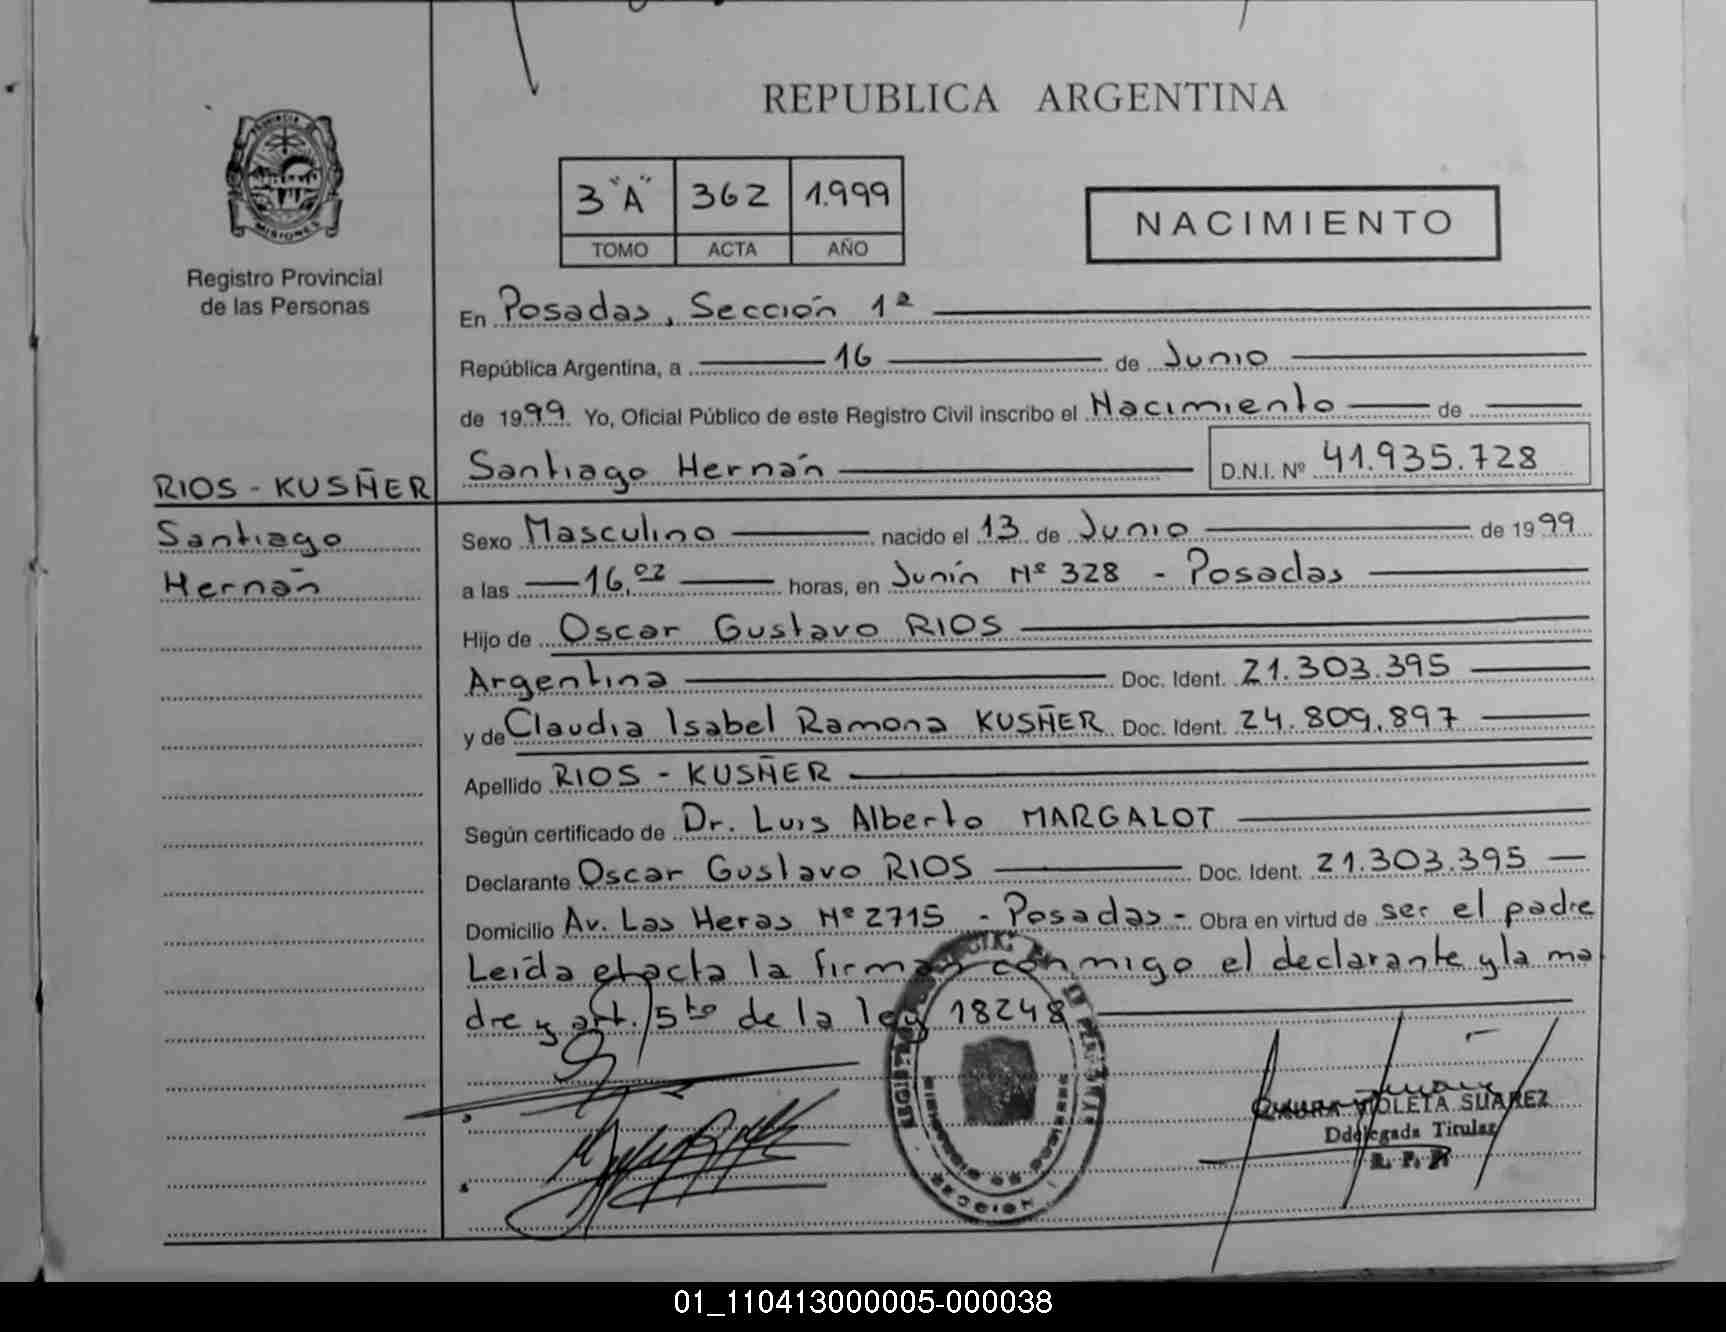 REPUBLICA ARGENTINA
PROVINCIA DE
MISIONES
Registro Provincial
de las Personas
3 "A" 362 1.999
TOMO ACTA AÑO
NACIMIENTO
En Posadas, Sección 1ª
República Argentina, a 16 de Junio
de 1999. Yo, Oficial Público de este Registro Civil inscribo el Nacimiento de
Santiago Hernán D.N.I. Nº 41.935.728
RIOS - KUSÑER
Santiago
Hernán
Sexo Masculino nacido el 13 de Junio de 1999
a las 16,02 horas, en Junín Nº 328 - Posadas
Hijo de Oscar Gustavo RIOS
Argentina Doc. Ident. 21.303.395
y de Claudia Isabel Ramona KUSÑER Doc. Ident. 24.809.897
Apellido RIOS - KUSÑER
Según certificado de Dr. Luis Alberto MARGALOT
Declarante Oscar Gustavo RIOS Doc. Ident. 21.303.395
Domicilio Av. Las Heras Nº 2715 - Posadas - Obra en virtud de ser el padre
Leída el acta la firman conmigo el declarante y la ma
dre y art. 5to de la ley 18248
VIOLETA SUAREZ
Ddelegada Titular
R. P. P.
01_110413000005-000038